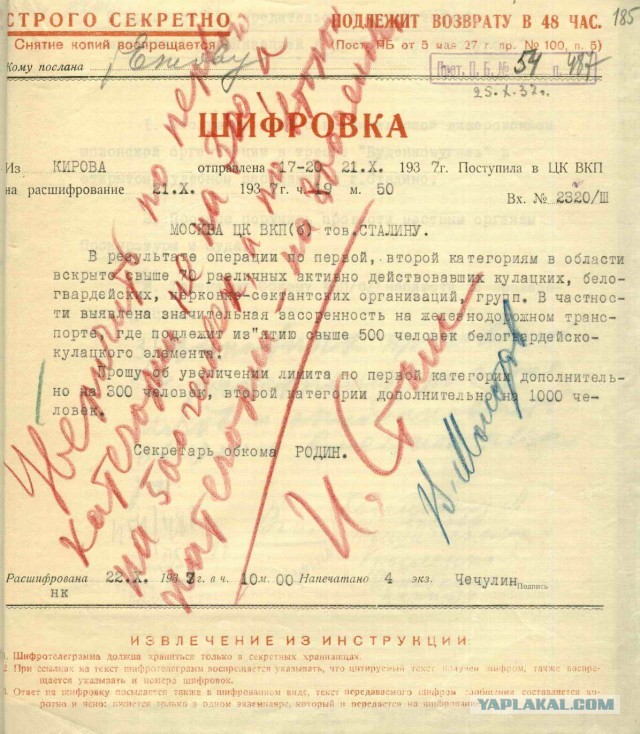 185
СТРОГО СЕКРЕТНО
ПОДЛЕЖИТ ВОЗВРАТУ В 48 ЧАС.
Снятие копий воспрещается
(Пост. ПБ от 5 мая 27 г. пр. № 100, п. 5)
Кому послана Ежову
Прот. П. Б. № 54 п. 487
25.X.37г.
ШИФРОВКА
Из КИРОВА отправлена 17-20 21.X. 1937г. Поступила в ЦК ВКП
на расшифрование 21.X. 1937г. ч. 19 м. 50
Вх. № 2320/III
МОСКВА ЦК ВКП(б) тов. СТАЛИНУ.
В результате операции по первой, второй категориям в области
вскрыто свыше 70 различных активно действовавших кулацких, бело-
гвардейских, церковно-сектантских организаций, групп. В частности
выявлена значительная засоренность на железнодорожном транс-
порте, где подлежит из"ятию свыше 500 человек белогвардейско-
кулацкого элемента.
Прошу об увеличении лимита по первой категории дополнитель-
но на 300 человек, второй категории дополнительно на 1000 че-
ловек.
Секретарь обкома РОДИН.
Увеличить по первой
категории не на 300, а
на 500 человек, а по второй
категории – на 800 человек
И. Сталин
В. Молотов
Расшифрована 22.X. 1937г. в ч. 10 м. 00 Напечатано 4 экз. Чечулин Подпись
нк
ИЗВЛЕЧЕНИЕ ИЗ ИНСТРУКЦИИ:
1. Шифротелеграмма должна храниться только в секретных хранилищах.
2. При ссылках на текст шифротелеграмм воспрещается указывать, что цитируемый текст получен шифром, также воспре-
щается указывать и номера шифровок.
3. Ответ на шифровку посылается также в шифрованном виде, текст передаваемого шифром сообщения составляется ко-
ротко и ясно; пишется только в одном экземпляре, который и передается на шифрование
YAPLAKAL.COM